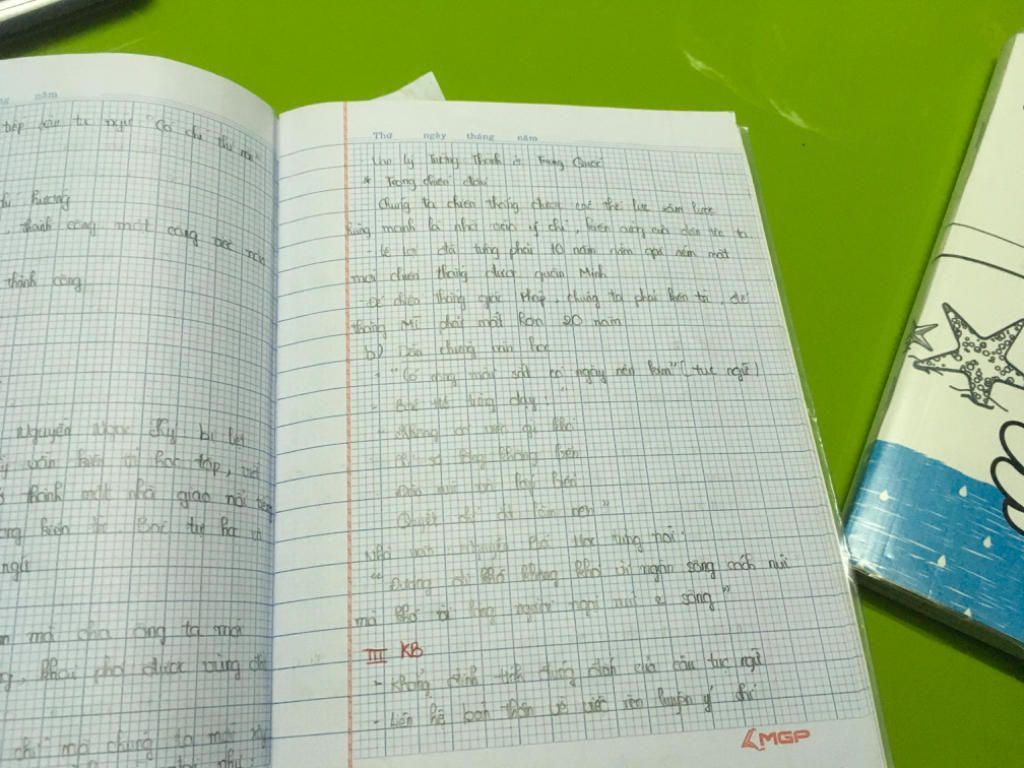 năm
tiếp câu tục ngữ "Có chí thì nên"
hương
thành công một công việc nào
thành công
Nguyễn Ngọc Ký bị liệt
vẫn kiên trì học tập, mới
thành một nhà giáo nổi tiếng
kiên trì, Bác tự học
ngữ
mà cha ông ta mới
khai phá được vùng
chí" mà chúng ta mới
Thứ ngày tháng năm
ở Trung Quốc
* Trong chiến đấu
Chúng ta chiến thắng được các thế lực xâm lược
hùng mạnh là nhờ ý chí, kiên cường của dân tộc ta
- Lê Lợi đã từng phải 10 năm nằm gai nếm mật
mới chiến thắng được quân Minh
- Để chiến thắng giặc Pháp, chúng ta phải kiên trì, để
thắng Mĩ phải mất hơn 20 năm
b) Dẫn chứng văn học
- "Có công mài sắt có ngày nên kim" (tục ngữ)
- Bác Hồ từng dạy "
- Không có việc gì khó
Chỉ sợ lòng không bền
Đào núi và lấp biển
Quyết chí ắt làm nên"
Nhà văn Nguyễn Bá Học từng nói:
"Đường đi khó không khó vì ngăn sông cách núi
mà khó vì lòng người ngại núi e sông"
III KB
- Khẳng định tính đúng đắn của câu tục ngữ
- Liên hệ bản thân về việc rèn luyện ý chí
MGP